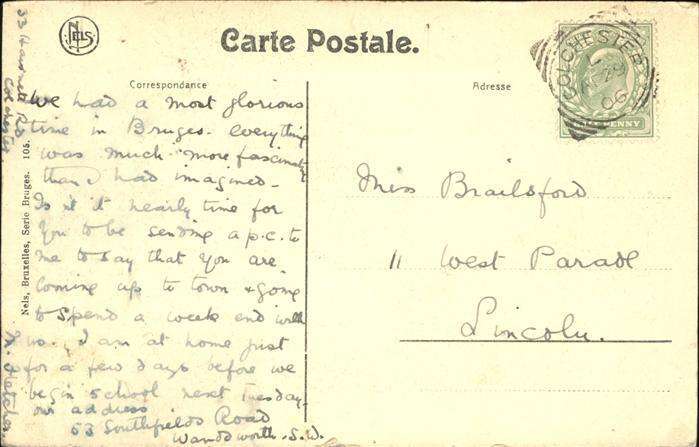 NELS
Carte Postale.
COLCHESTER
06
HALFPENNY
Correspondance
Adresse
We had a most glorious
time in Bruges. everything
was much more fascinating
than I had imagined -
Is it nearly time for
you to be sending a p.c. to
me to say that you are
coming up to town & going
to spend a week end with
us. I am at home just
for a few days before we
begin school next Tuesday.
our address
53 Southfields Road
Wandsworth. S.W.
Miss Brailsford
11 West Parade
Lincoln.
Nels, Bruxelles, Serie Bruges. 105.
33 Rd
Colchester